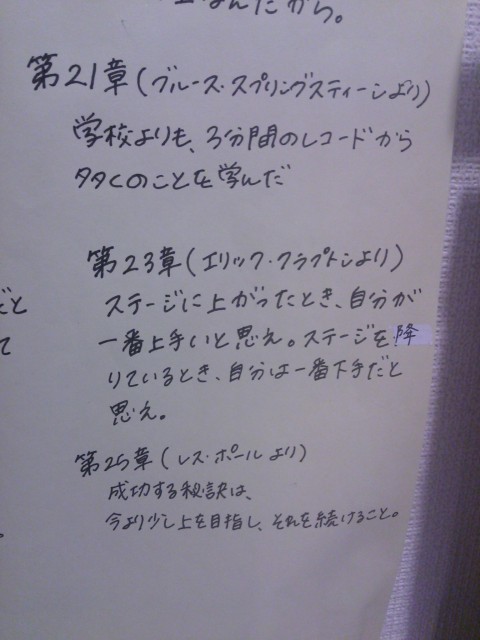 なんだから。
第21章(ブルース・スプリングスティーンより)
学校よりも、3分間のレコードから
多くのことを学んだ
第23章(エリック・クラプトンより)
ステージに上がったとき、自分が
一番上手いと思え。ステージを降
りているとき、自分は一番下手だと
思え。
第25章(レス・ポールより)
成功する秘訣は、
今より少し上を目指し、それを続けること。
だと
て
。